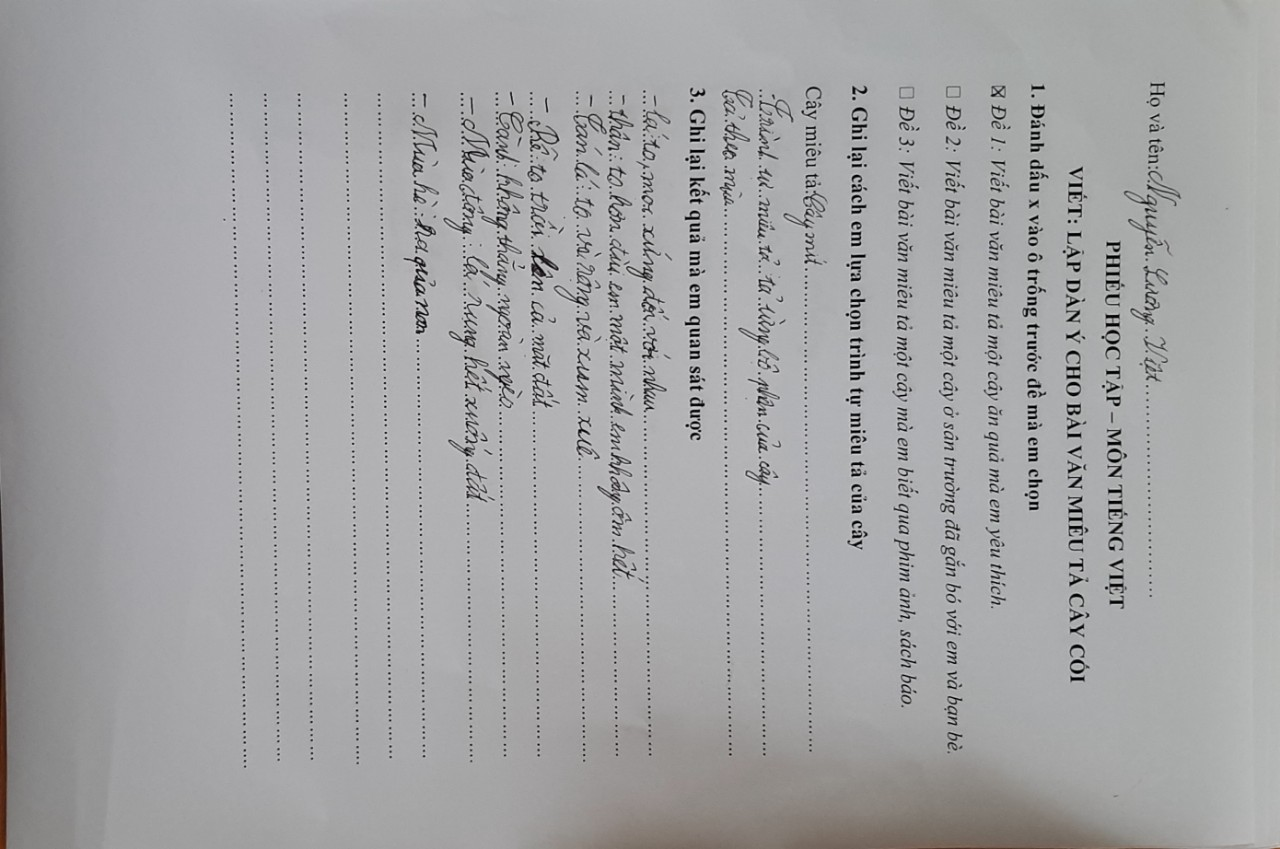 Họ và tên: Nguyễn Lương Việt
PHIẾU HỌC TẬP – MÔN TIẾNG VIỆT
VIẾT: LẬP DÀN Ý CHO BÀI VĂN MIÊU TẢ CÂY CỐI
1. Đánh dấu x vào ô trống trước đề mà em chọn
☒ Đề 1: Viết bài văn miêu tả một cây ăn quả mà em yêu thích.
☐ Đề 2: Viết bài văn miêu tả một cây ở sân trường đã gắn bó với em và bạn bè.
☐ Đề 3: Viết bài văn miêu tả một cây mà em biết qua phim ảnh, sách báo.
2. Ghi lại cách em lựa chọn trình tự miêu tả của cây
Cây miêu tả: Cây mít
- Trình tự miêu tả: tả từng bộ phận của cây
Tả theo mùa
3. Ghi lại kết quả mà em quan sát được
- lá: to, mọc xứng đối với nhau
- thân: to hơn đầu em một mình em không ôm hết
- tán lá: to và rộng và xum xuê
- Rễ: to trồi lên cả mặt đất
- Cành: không thẳng ngoằn ngèo
- Mùa đông: lá rụng hết xuống đất
- Mùa hè: Ra quả non